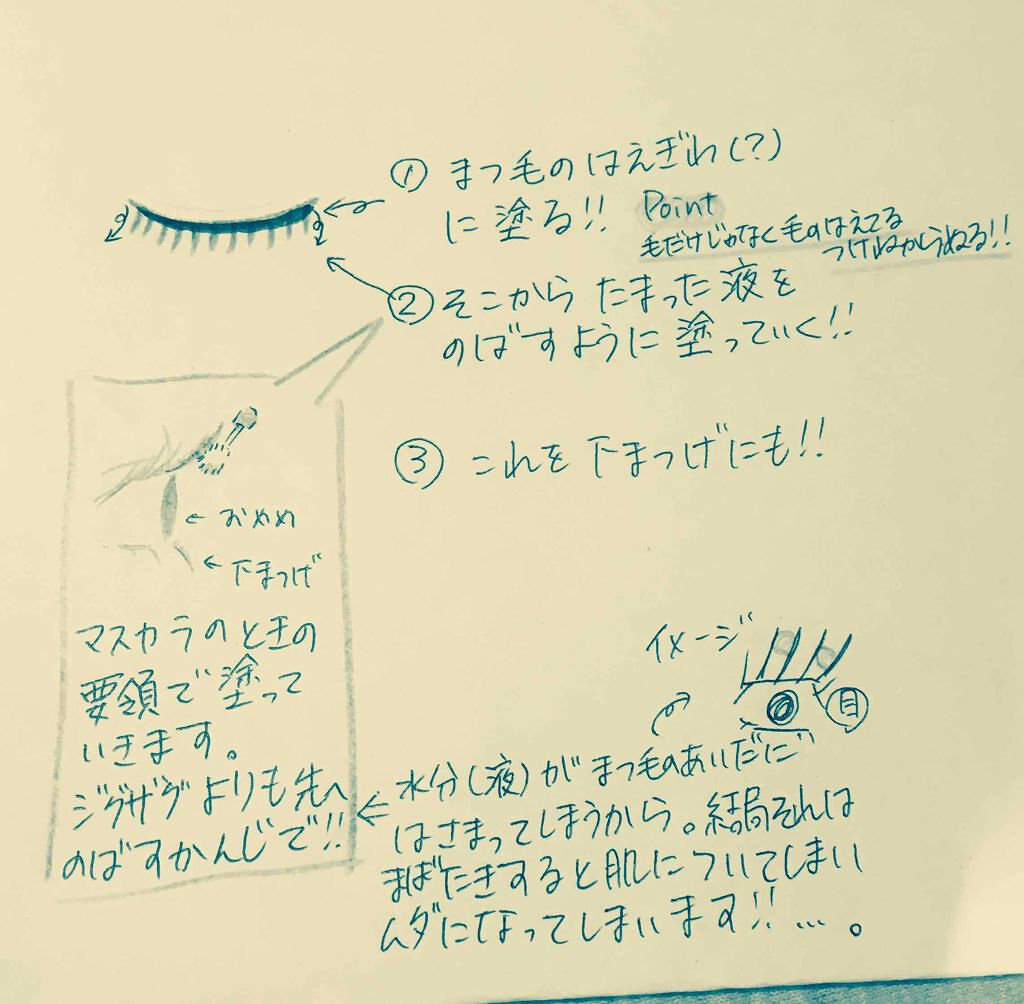 ① まつ毛のはえぎわ(?)
に塗る!!
Point
毛だけじゃなく毛のはえてる
つけねからぬる!!
② そこから たまった液を
のばすように塗っていく!!
③ これを下まつげにも!!
← おめめ
← 下まつげ
マスカラのときの
要領で塗って
いきます。
ジグザグよりも先へ
のばすかんじで!!
イメージ
目
← 水分(液)がまつ毛のあいだに
はさまってしまうから。結局それは
まばたきすると肌についてしまい
ムダになってしまいます!!…。